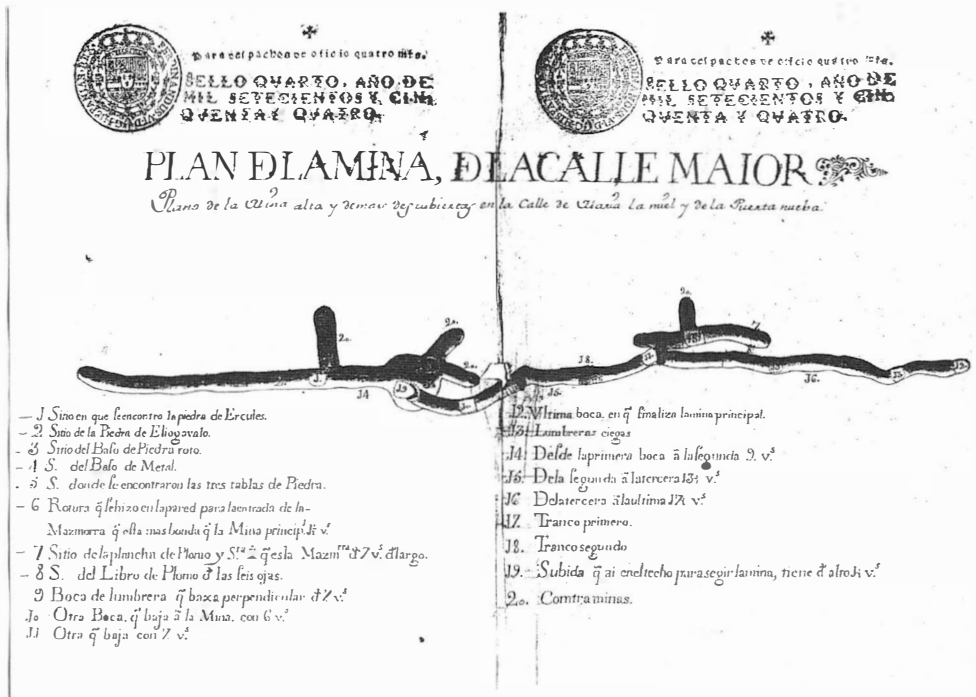 Para despachos de oficio quatro mrs.
SELLO QVARTO, AÑO DE
MIL SETECIENTOS Y CIN
QVENTA Y QVATRO.
Para despachos de oficio quatro mrs.
SELLO QVARTO, AÑO DE
MIL SETECIENTOS Y CIN
QVENTA Y QVATRO.
PLAN DLAMINA, DELACALLE MAIOR
Plano de la Mina alta y demas descubiertas en la Calle de Maria la miel y de la Puerta nueba.
20.
20.
20.
20.
7
18.
16.
14
15.
19
12.
1 Sitio en que se encontro la piedra de Ercules.
2. Sitio de la Piedra de Eliogavalo.
3 Sitio del Baso de Piedra roto.
4 S. del Baso de Metal.
5 S. donde se encontraron las tres tablas de Piedra.
6 Rotura q̃ se hizo en la pared para la entrada de la
Mazmorra q̃ esta mas honda q̃ la Mina princip.l 1½ v.s
7 Sitio de la plancha de Plomo y q̃ es la Mazm.rra d' 7 v.s d' largo.
8 S. del Libro de Plomo d' las seis ojas.
9 Boca de lumbrera q̃ baxa perpendicular d' 7 v.s
10 Otra Boca, q̃ baja â la Mina, con 6 v.s
11 Otra q̃ baja con 7 v.s
12. Vltima boca, en q̃ finaliza la mina principal.
13. Lumbreras ciegas
14. Desde la primera boca â la segunda 9. v.s
15. De la segunda â la tercera 13½ v.s
16 De la tercera â la ultima 17½ v.s
17. Tranco primero.
18. Tranco segundo
19. Subida q̃ ai en el techo para segir la mina, tiene d' alto 1½ v.s
20. Comtraminas.